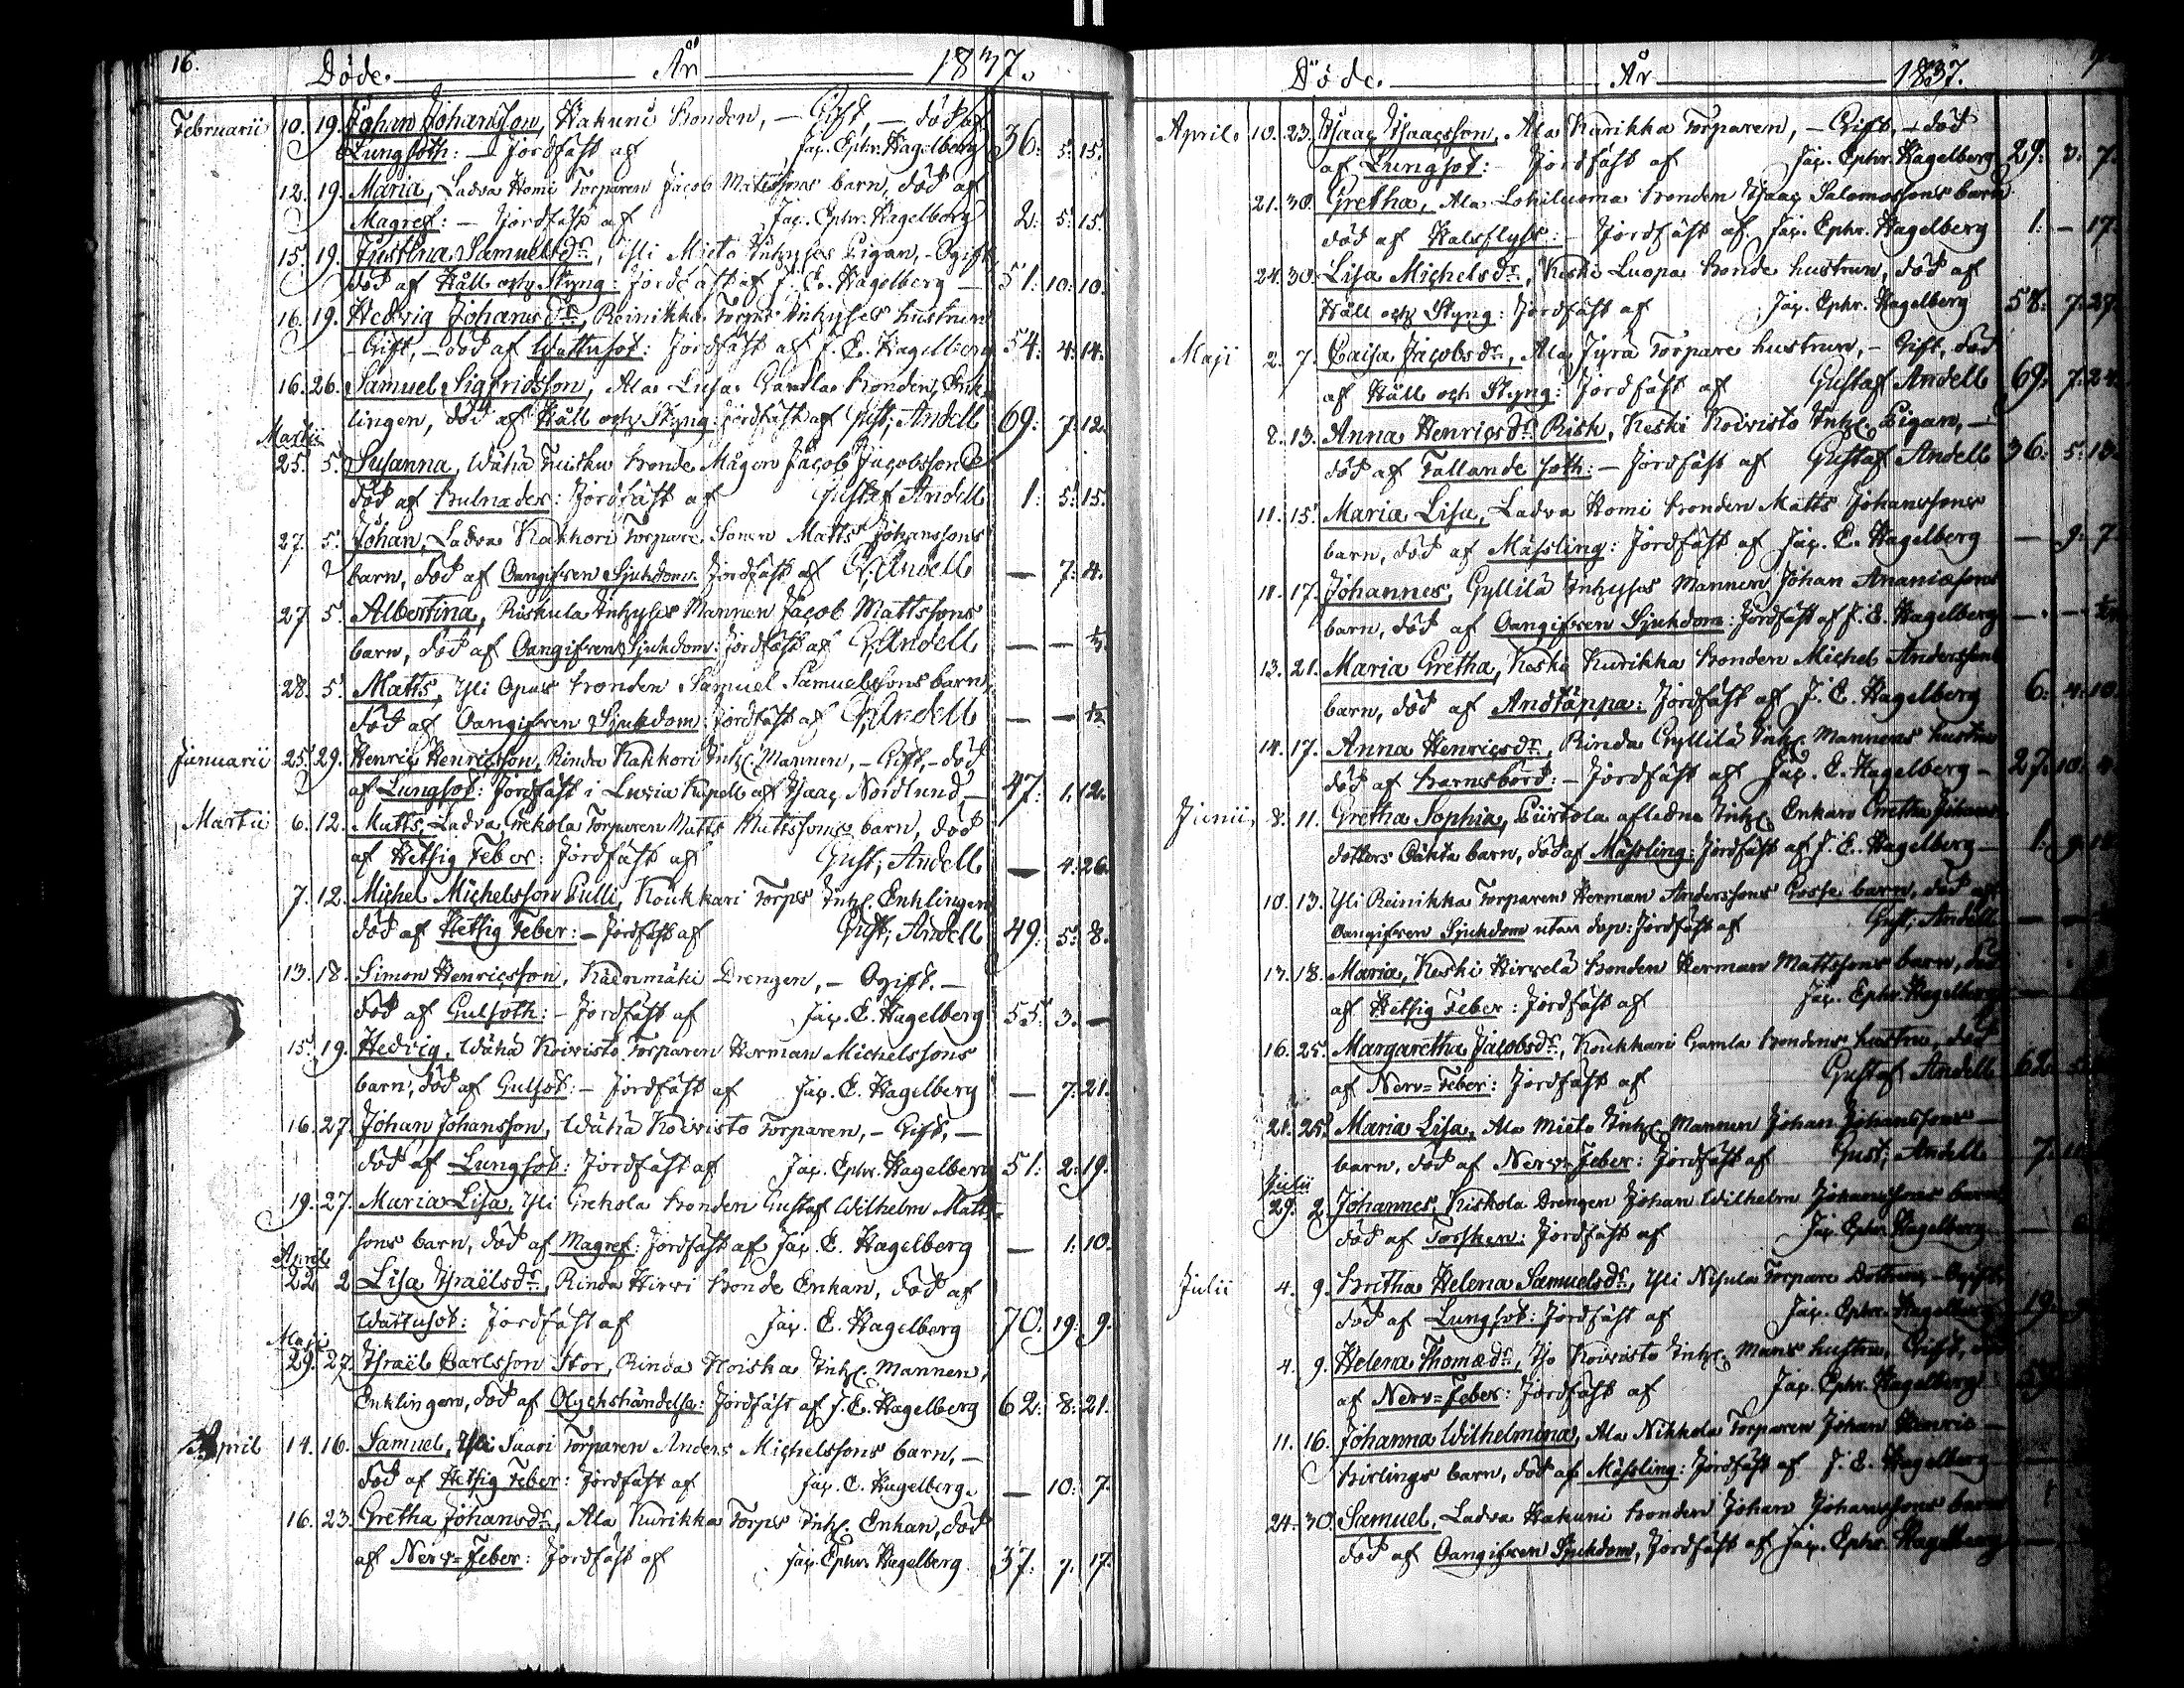 16.
Döde. År 1837.
Februarii 10. 19. Johan Johansson, Hakuni Bonden, – Gift, – död af
Lungsoth: – Jordfäst af Jac. Ephr. Hagelberg 36: 5: 15.
12. 19. Maria, Ladva Homi Torparen Jacob Mattssons barn, död af
Magref: – Jordfäst af Jac. Ephr. Hagelberg 2: 5: 15.
15. 19. Justina Samuelsdr, Yli Mieto Inhyses Pigan, – Ogift,
död af Håll och Styng: Jordfäst af J. E. Hagelberg – 51: 10: 10.
16. 19. Hedvig Johansdr, Reinikka Torps Inhyses hustrun
– Gift, – död af Wattusot: Jordfäst af J. E. Hagelberg 54: 4: 14.
16. 26. Samuel Sigfridsson, Ala Lusa Gamla bonden, Enk-
lingen, död af Håll och Styng: jordfäst af Gust; Andell 69: 7: 12.
Martii
25. 5. Susanna, Wähä Bonde Mågen Jacob Jacobsson
död af Bulnader: Jordfäst af Gustaf Andell 1: 5: 15.
27. 5. Johan, Ladva Kakkori Torpare Sonen Matts Johanssons
barn, död af Oangifven Sjukdom: Jordfäst af G. Andell — 7: 4.
27. 5. Albertina, Riskula Inhyses Mannen Jacob Mattssons
barn, död af Oangifven Sjukdom: Jordfäst af G. Andell — —
28. 5. Matts, Yli Opas bonden Samuel Samuelssons barn,
död af Oangifven Sjukdom: Jordfäst af G. Andell — — ½
Januarii 25. 29. Henric Henricsson, Rinda Kakkori Inhs. Mannen, – Gift, – död
af Lungsot: Jordfäst i Kapell af Isaac Nordlund, – 47: 1: 12.
Martii 6. 12. Matts, Ladva Grekola Torparen Matts Mattssons barn, död
af Hetsig Feber: Jordfäst af Gust; Andell — 4: 26.
7. 12. Michel Michelsson Pulli, Koukkari Torps Inhs. Enklingen
död af Hetsig Feber: – Jordfäst af Gust; Andell 49: 5: 8.
13. 18. Simon Henricsson, Käenmäki Drengen, – Ogift. –
död af Gulsoth: – Jordfäst af Jac. E. Hagelberg 55: 3. —
15. 19. Hedvig, Wähä Koivisto Torparen Herman Michelssons
barn, död af Gulsot: – Jordfäst af Jac. E. Hagelberg — 7: 21.
16. 27. Johan Johansson, Wähä Koivisto Torparen, – Gift, –
död af Lungsot: Jordfäst af Jac. Ephr. Hagelberg 51: 2: 19.
19. 27. Maria Lisa, Yli Grekola bonden Gustaf Wilhelm Matts-
sons barn, död af Magref: Jordfäst af Jac. E. Hagelberg — 1: 10.
April
22. 2 Lisa Israëlsdr, Rinda Hirvi Bonde Enkan, död af
Wattusot: Jordfäst af Jac. E. Hagelberg 70. 19: 9.
Maji
29. 27. Israël Carlsson Stor, Rinda Hoiska Inhs. Mannen,
Enklingen, död af Olyckshändelse: Jordfäst af J. E. Hagelberg 62: 8: 21.
April 14. 16. Samuel, Yli Saari Torparen Anders Michelssons barn, –
död af Hetsig Feber: Jordfäst af Jac. E. Hagelberg. — 10: 7.
16. 23. Gretha Johansdr, Ala Kurikka Torps Inhs. Enkan, död
af Nerv-Feber: Jordfäst af Jac. Ephr. Hagelberg 37: 7. 17.
Döde. År 1837.
April. 10. 23. Isaac Isaacsson, Ala Kurikka Torparen, – Gift, – död
af Lungsot: Jordfäst af Jac. Ephr. Hagelberg 29: 3: 7.
21. 30. Gretha, Ala Lohiluoma bonden Isaac Salomossons barn
död af Halsflyss: – Jordfäst af Jac. Ephr. Hagelberg 1: – 17.
24. 30. Lisa Michelsdr, Keski Luopa Bonde hustrun, död af
Håll och Styng: Jordfäst af Jac. Ephr. Hagelberg 58: 7: 27.
Maji 2. 7. Caisa Jacobsdr, Ala Jyrä Torpare hustrun, – Gift, död
af Håll och Styng: Jordfäst af Gustaf Andell 69: 7: 24.
8. 13. Anna Henricsdr Risk, Keski Koivisto Inhs. Pigan, –
död af Fallande soth: – Jordfäst af Gustaf Andell 36: 5:
11. 15. Maria Lisa, Ladva Homi bonden Matts Johanssons
barn, död af Mässling: Jordfäst af Jac. E. Hagelberg — 9: 7.
11. 17. Johannes, Gyllilä Inhyses Mannen Johan Ananiæsons
barn, död af Oangifven Sjukdom: Jordfäst af J. E. Hagelberg —
13. 21. Maria Gretha, Keski Kurikka bonden Michel Anderssons
barn, död af Andtäppa: Jordfäst af J. E. Hagelberg 6: 4: 10.
14. 17. Anna Henricsdr, Rinda Gyllilä Inhs. Mannens hustru
död af Barnsbörd: – Jordfäst af Jac. E. Hagelberg – 27. 10:
Junii, 8. 11. Gretha Sophia, Piirtola aflednа Inhs. Enkans Gretha Johans-
dotters Oäkta barn, död af Mässling: Jordfäst af J. E. Hagelberg – 1: 9:
10. 13. Yli Reinikka Torparen Herman Anderssons Gosse barn, död af
Oangifven Sjukdom utan dop: Jordfäst af Gust; Andell —
17. 18. Maria, Keski Hirvelä bonden Herman Mattssons barn, död
af Hetsig Feber: Jordfäst af Jac. Ephr. Hagelberg —
16. 25. Margaretha Jacobsdr, Koukkari Gamla bondens hustru, död
af Nerv-Feber: Jordfäst af Gustaf Andell 62.
21. 25. Maria Lisa, Ala Mieto Inhs. Mannen Johan Johanssons –
barn, död af Nerv-Feber: Jordfäst af Gust; Andell 7:
Julii
29. 2. Johannes, Kiskola Drengen Johan Wilhelm Johanssons barn
död af Torsken: Jordfäst af Jac. Ephr. Hagelberg —
Julii 4. 9. Britha Helena Samuelsdr, Yli Nisula Torpare Dottern, – Ogift
död af Lungsot: Jordfäst af Jac. Ephr. Hagelberg 19:
4. 9. Helena Thomædr, Iso Koivisto Inhs. Mans hustru, Gift,
af Nerv-Feber: Jordfäst af Jac. Ephr. Hagelberg
11. 16. Johanna Wilhelmina, Ala Nikkola Torparen Johan Henric –
Birlings barn, död af Mässling: Jordfäst af J. E. Hagelberg
24. 30. Samuel, Ladva Hakuni bonden Johan Johanssons barn
död af Oangifven Sjukdom, Jordfäst af Jac. Ephr. Hagelberg